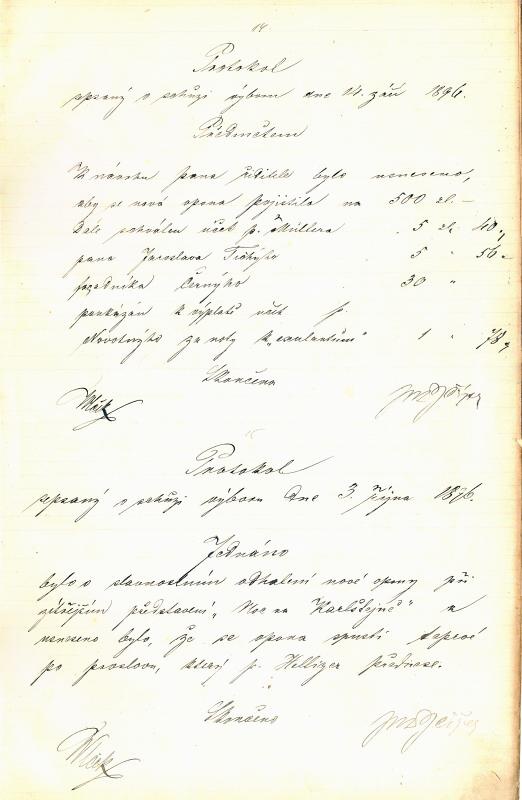 14.
Protokol
sepsaný o schůzi výboru dne 14. září 1896.
Předmětem
K návrhu pana ředitele bylo usneseno,
aby se nová opona pojistila na 500 zl. –
Dále schválen účet p. Müllera . 5 zl. 40 „
pana Jaroslava Tichýho 5 " 56 „
Černýho 30 "
poukázán k výplatě účet p.
Novotnýho za noty k „ 1 " 78 „
Skončeno
15
Protokol
sepsaný o schůzi výboru dne 3. října 1896.
Jednáno
bylo o slavnostním odhalení nové opony při
zítřejším představení „Noc na Karlštejně" a
usneseno bylo, že se opona spustí teprvé
po proslovu, který p. Hellizer přednese.
Skončeno